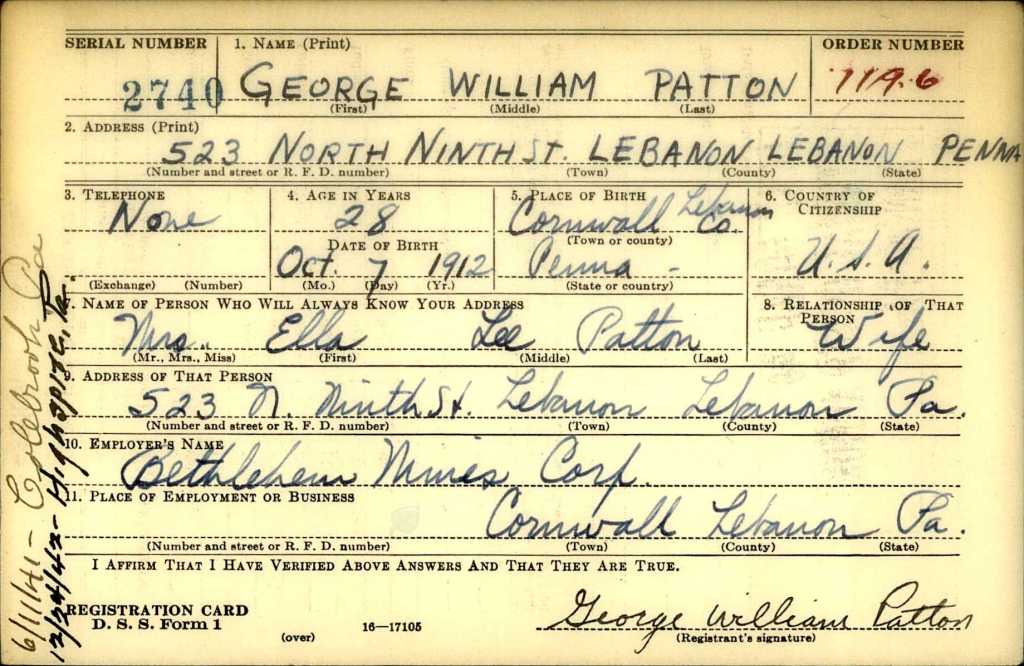 SERIAL NUMBER 1. NAME (Print) ORDER NUMBER
2740 GEORGE WILLIAM PATTON 1196
(First) (Middle) (Last)
2. ADDRESS (Print)
523 NORTH NINTH ST. LEBANON LEBANON PENNA
(Number and street or R. F. D. number) (Town) (County) (State)
3. TELEPHONE 4. AGE IN YEARS 5. PLACE OF BIRTH 6. COUNTRY OF CITIZENSHIP
None 28 Cornwall Lebanon Co.
DATE OF BIRTH (Town or county)
Oct. 7 1912 Penna - U.S.A.
(Exchange) (Number) (Mo.) (Day) (Yr.) (State or country)
7. NAME OF PERSON WHO WILL ALWAYS KNOW YOUR ADDRESS 8. RELATIONSHIP OF THAT PERSON
Mrs. Ella Lee Patton Wife
(Mr., Mrs., Miss) (First) (Middle) (Last)
9. ADDRESS OF THAT PERSON
523 N. Ninth St. Lebanon Lebanon Pa.
(Number and street or R. F. D. number) (Town) (County) (State)
10. EMPLOYER'S NAME
Bethlehem Mines Corp.
11. PLACE OF EMPLOYMENT OR BUSINESS
Cornwall Lebanon Pa.
(Number and street or R. F. D. number) (Town) (County) (State)
I AFFIRM THAT I HAVE VERIFIED ABOVE ANSWERS AND THAT THEY ARE TRUE.
REGISTRATION CARD
D. S. S. Form 1 George William Patton
(over) 16—17105 (Registrant's signature)
6/11/41 - Colebrook Pa
12/24/42 - Highspire, Pa.